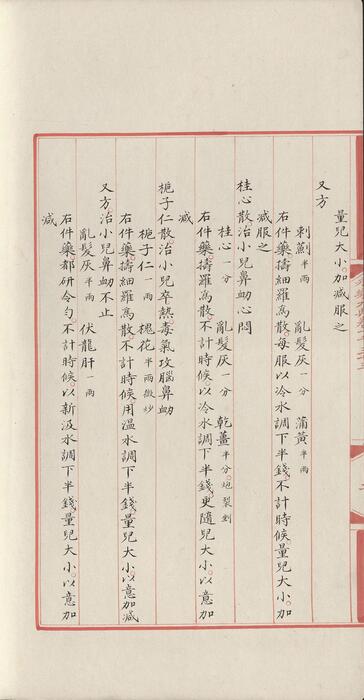 量兒大小。加減服之
又方
刺薊半兩 亂髮灰一分 蒲黃半兩
右件藥。擣細羅為散。每服以冷水調下半錢。不計時候。量兒大小。加
減服之
桂心散治小兒鼻衂心悶
桂心一分 亂髮灰一分 乾薑半分。炮裂剉
右件藥。擣羅為散。不計時候。以冷水調下半錢。更隨兒大小。以意加
減
梔子仁散。治小兒卒熱。毒氣攻腦鼻衂
梔子仁一兩 槐花半兩微炒
右件藥。擣細羅為散。不計時候。用溫水調下半錢。量兒大小。以意加減
又方。治小兒鼻衂不止
亂髮灰半兩 伏龍肝一兩
右件藥。都研令勻。不計時候。以新汲水調下半錢。量兒大小。以意加
減